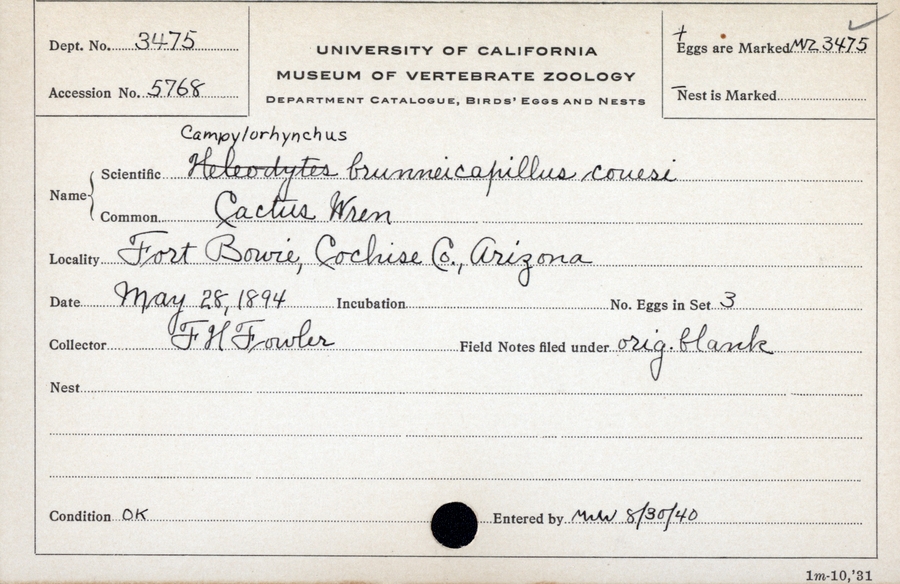 Dept. No. 3475
Accession No. 5768
UNIVERSITY OF CALIFORNIA
MUSEUM OF VERTEBRATE ZOOLOGY
DEPARTMENT CATALOGUE, BIRDS' EGGS AND NESTS
+ Eggs are Marked MVZ 3475 ✓
– Nest is Marked
Campylorhynchus
Name { Scientific Heleodytes brunneicapillus couesi
Common Cactus Wren
Locality Fort Bowie, Cochise Co., Arizona
Date May 28, 1894 Incubation No. Eggs in Set 3
Collector F H Fowler Field Notes filed under orig. blank
Nest
Condition OK Entered by 8/30/40
1m-10,'31